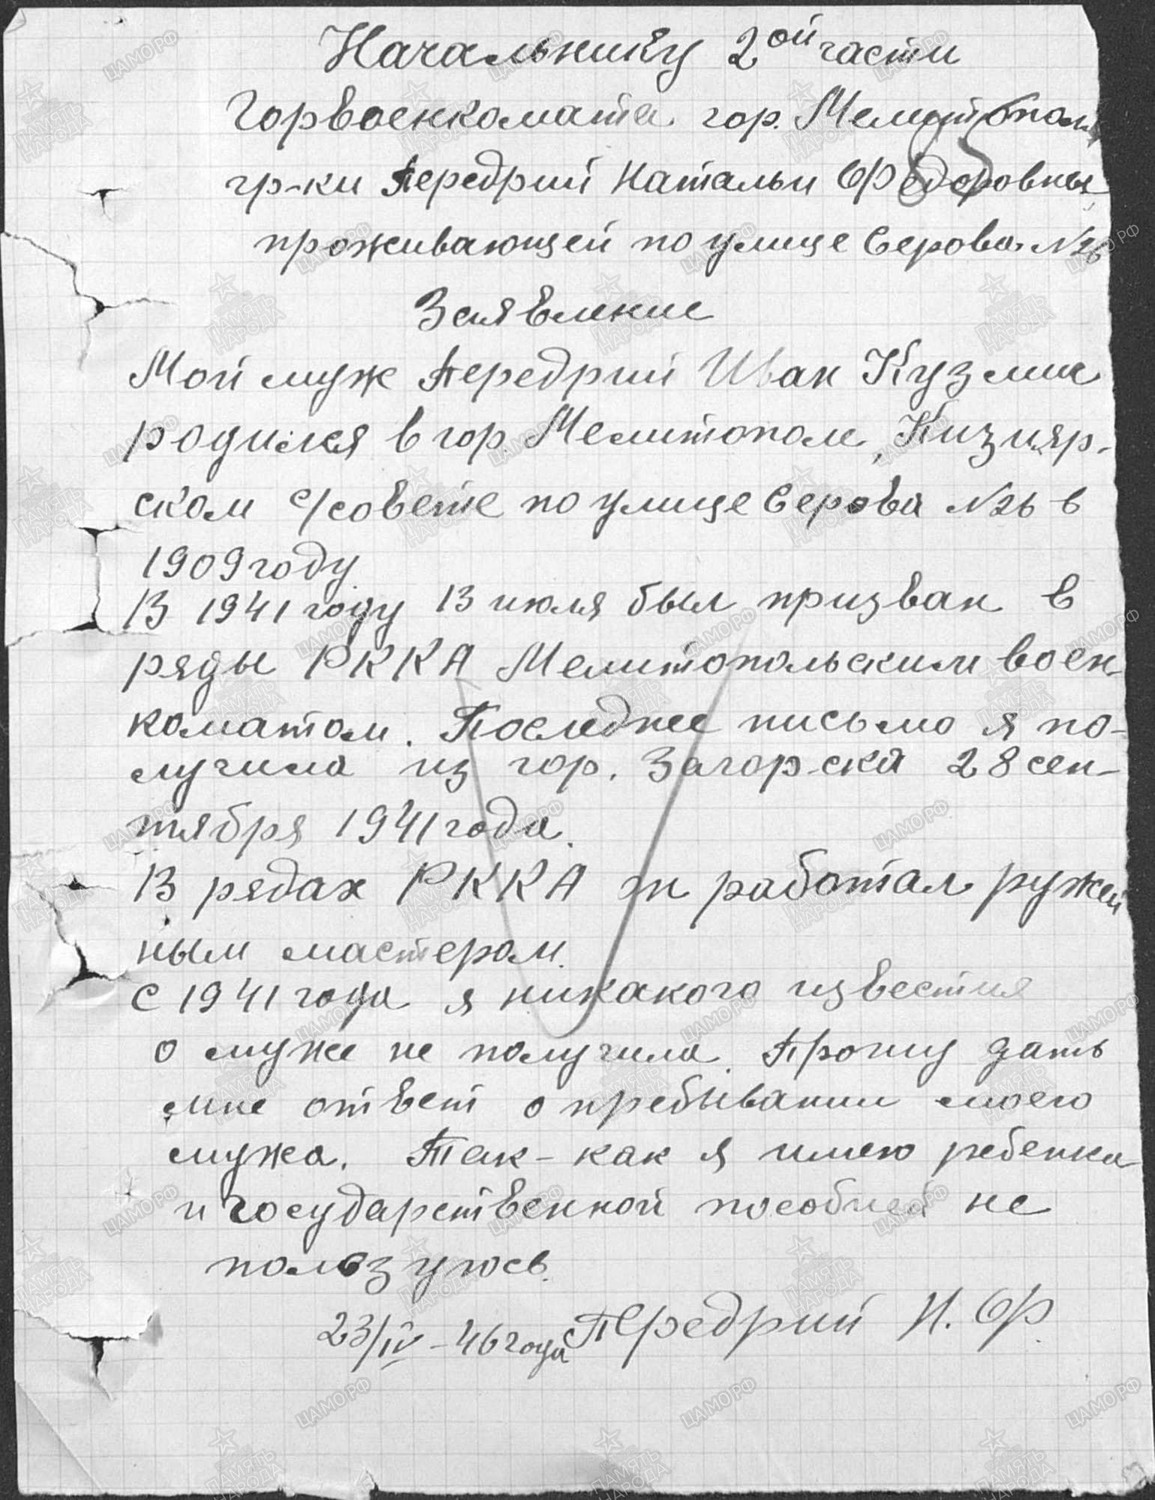 Начальнику 2ой части
Горвоенкомата гор. Мелитополь
гр-ки Передрий Натальи Федоровны
проживающей по улице Серова №26
Заявление
Мой муж Передрий Иван Кузмич
родился в гор Мелитополе, Кизияр-
ском с/совете по улице Серова №26 в
1909 году
В 1941 году 13 июля был призван в
ряды РККА Мелитопольским воен-
коматом. Последнее письмо я по-
лучила из гор. Загорска 28 сен-
тября 1941 года.
В рядах РККА он работал ружей
ным мастером.
С 1941 года я никакого известия
о муже не получила. Прошу дать
мне ответ о пребывании моего
мужа. Так-как я имею ребенка
и государственной пособией не
пользуюсь.
23/IV-46 года Передрий Н. Ф.